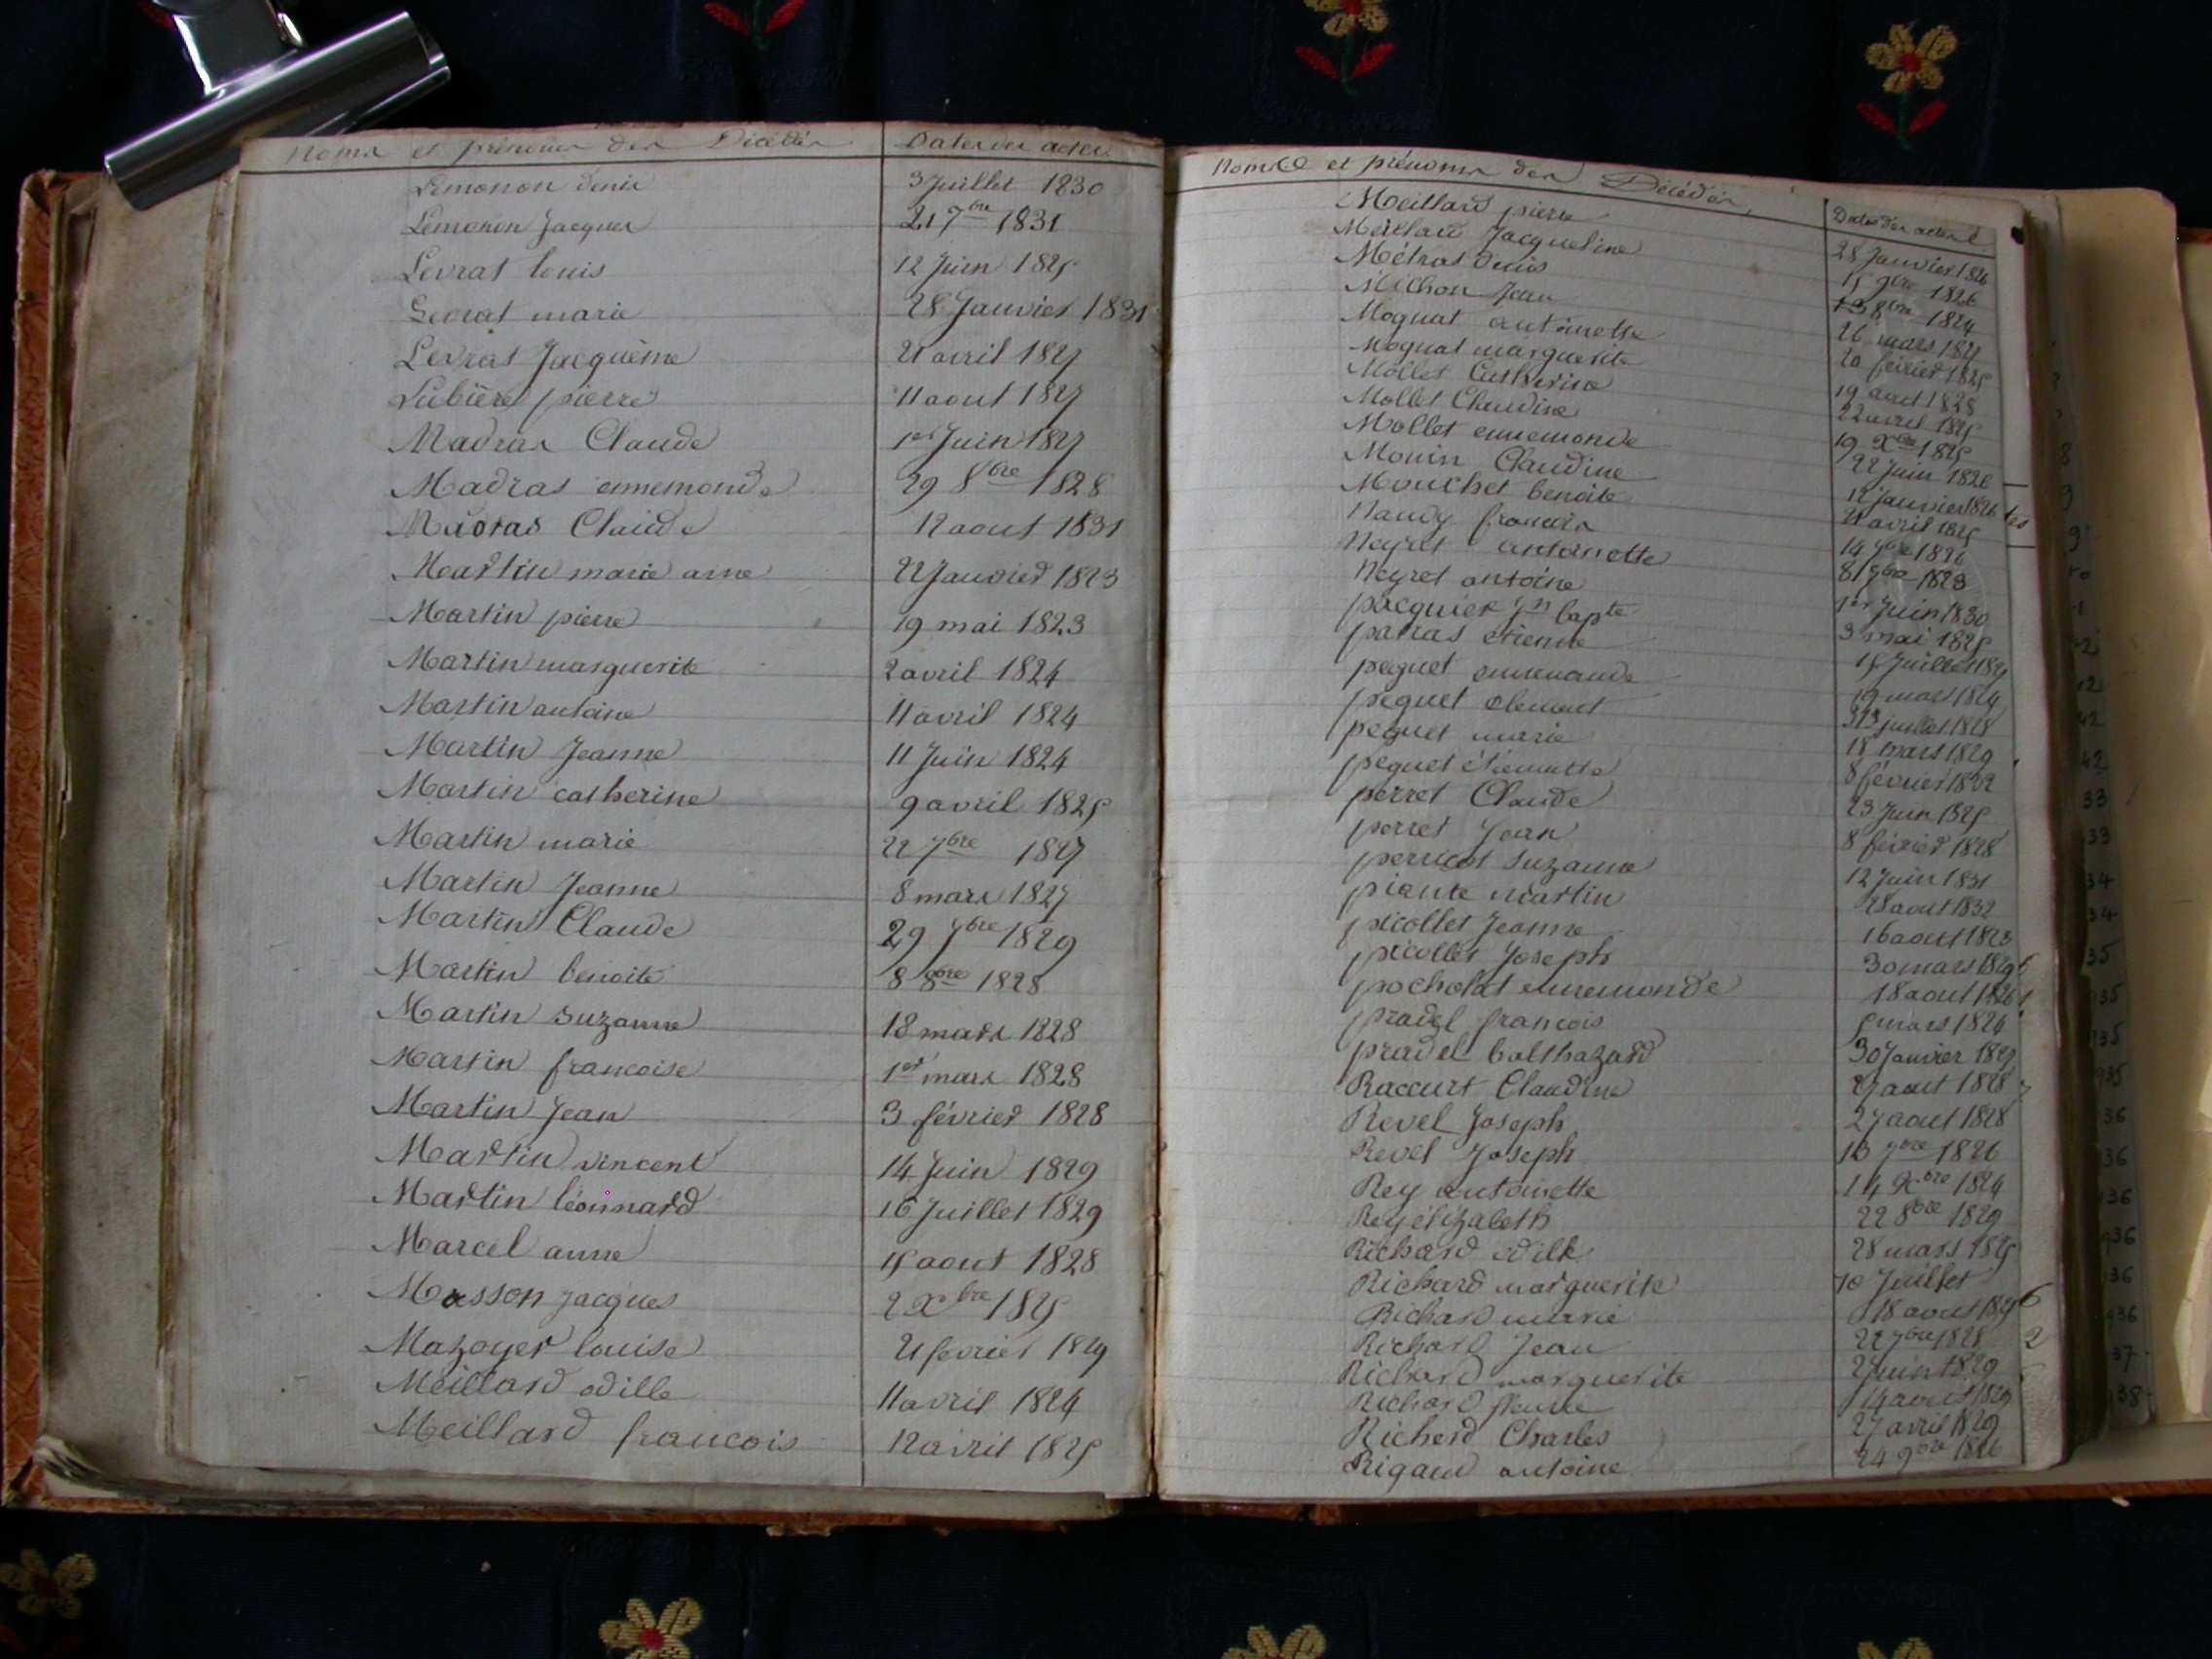 Noms et prénoms des Décédés Dates des actes
Lemonon denis 3 Juillet 1830
Lemonon Jacques 21 7bre 1831
Levrat louis 12 Juin 1825
Levrat marie 28 Janvier 1831
Levrat Jacquème 21 avril 1827
Lubière pierre 11 aout 1827
Madras Claude 1er Juin 1827
Madras ennemonde 29 8bre 1828
Madras Claude 12 aout 1831
Martin marie anne 22 Janvier 1823
Martin pierre 19 mai 1823
Martin marguerite 2 avril 1824
Martin antoine 11 avril 1824
Martin Jeanne 11 Juin 1824
Martin catherine 9 avril 1825
Martin marie 22 7bre 1827
Martin Jeanne 8 mars 1827
Martin Claude 29 7bre 1829
Martin benoite 8 8bre 1828
Martin suzanne 18 mars 1828
Martin francoise 1er mars 1828
Martin Jean 3 février 1828
Martin vincent 14 Juin 1829
Martin léonnard 16 Juillet 1829
Marcel anne 15 aout 1828
Masson Jacques 2 Xbre 1825
Mazoyer louise 21 fevrier 1829
Meillard odille 11 avril 1824
Meillard francois 12 avril 1825
Noms et prénoms des Décédés Dates des actes
Meillard pierre 28 Janvier 1826
Meillard Jacqueline 15 9bre 1826
Métras denis 13 8bre 1824
Milhon Jean 26 mars 1827
Moguat antoinette 20 février 1825
Moguat marguerite 19 aout 1828
Mollet Catherine 22 avril 1825
Mollet Claudine 19 Xbre 1825
Mollet ennemonde 22 Juin 1826
Monin Claudine 12 Janvier 1826
Mouchet benoite 21 avril 1825
Nandy francois 14 7bre 1826
Neyret antoinette 8 9bre 1823
Neyret antoine 1er Juin 1830
pacquier Jn bapte 3 mai 1825
parras etienne 15 Juillet 1827
peguet ennemonde 19 mars 1824
peguet clement juillet 1828
peguet marie 18 mars 1829
peguet étiennette 8 février 1832
perret Claude 23 Juin 1825
perret Jean 8 février 1828
perricot suzanne 12 Juin 1831
piante martin 28 aout 1832
picollet Jeanne 16 aout 1823
picollet Joseph 30 mars
pocholat ennemonde 18 aout 1826
pradel francois 5 mars 1826
pradel balthazard 30 Janvier 1827
Raccurt Claudine 27 aout 1828
Revel Joseph 27 aout 1828
Revel Joseph 16 7bre 1826
Rey antoinette 14 Xbre 1824
Rey élizabeth 22 8bre 1829
Richard odille 28 mars 1825
Richard marguerite 10 Juillet
Richard marie 18 aout
Richard Jean 22 7bre 1828
Richard marguerite 2 Juin 1829
Richard 14 avril 1829
Richerd Charles 27 avril 1829
Rigaud antoine 24 9bre 1826